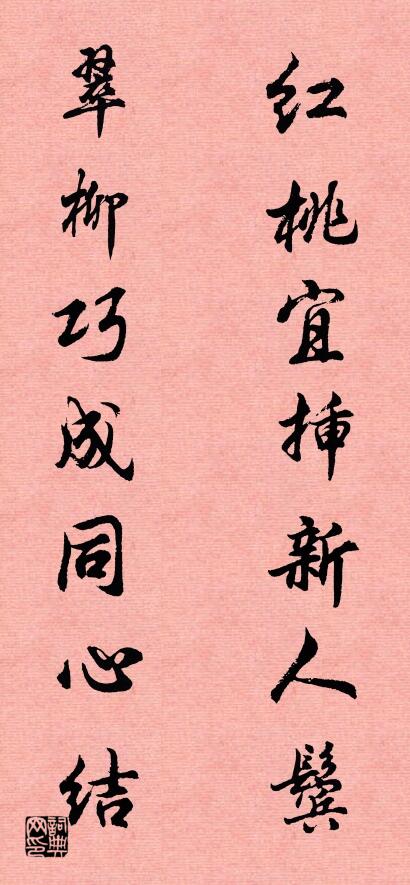 红桃宜插新人鬓
翠柳巧成同心结
词典网印